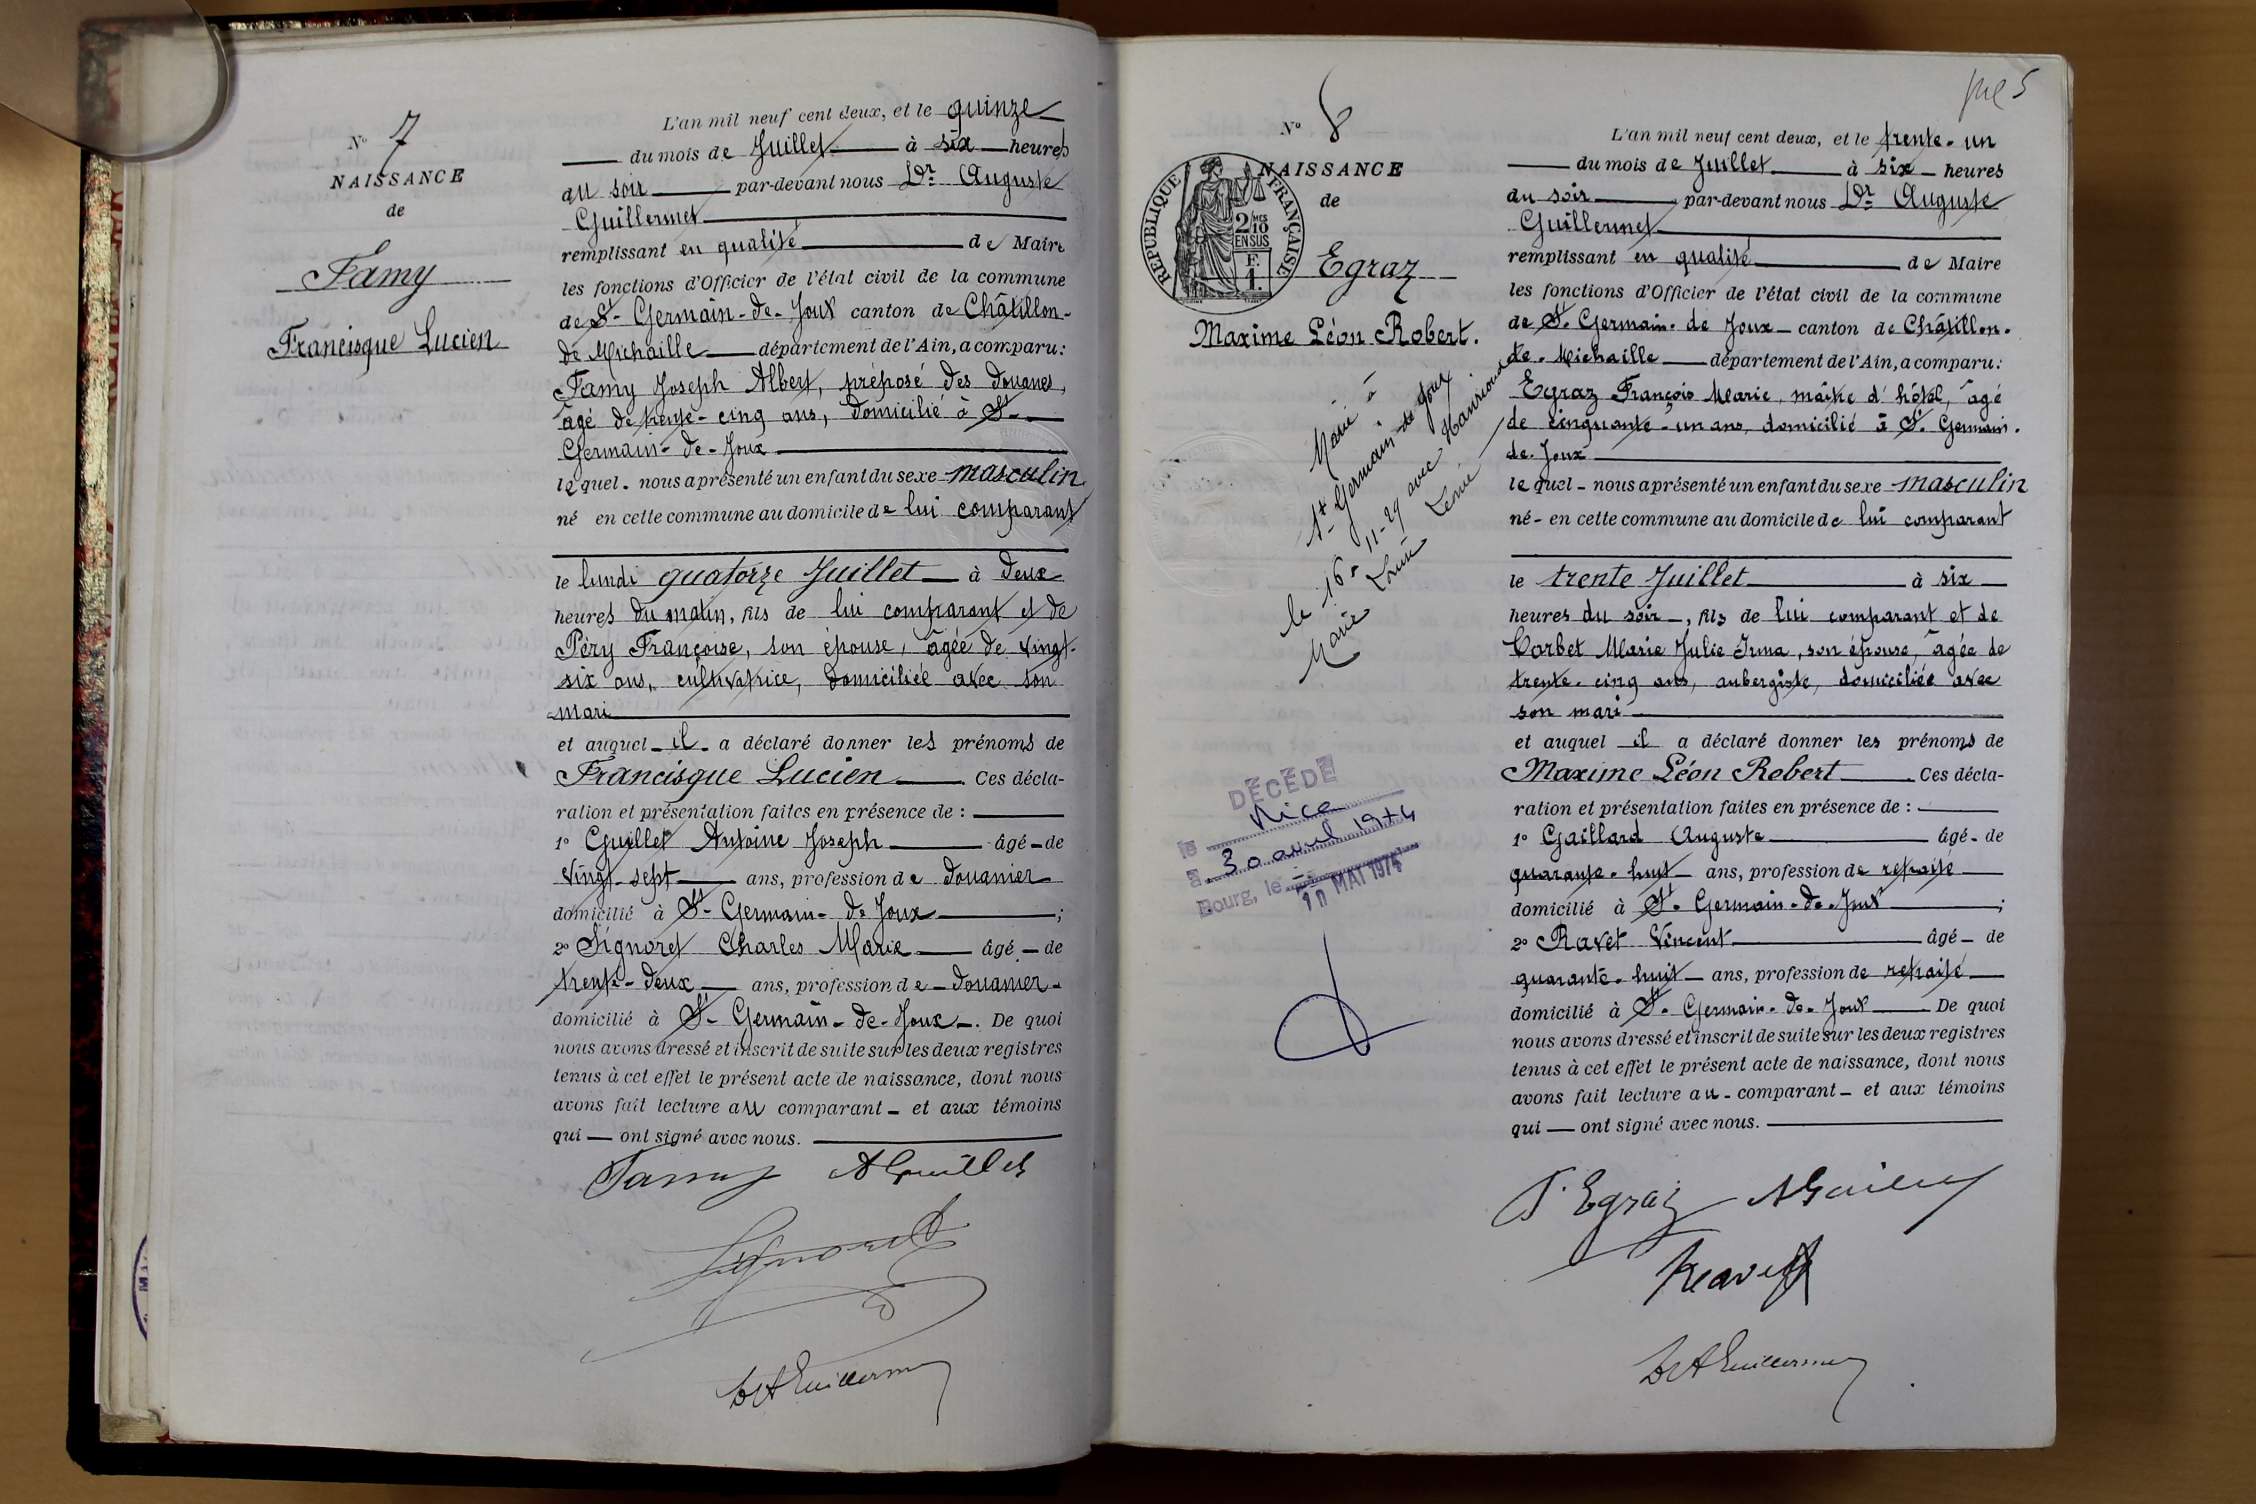 N° 7
NAISSANCE
de
Famy
Francisque Lucien
L'an mil neuf cent deux, et le quinze
du mois de Juillet à six heures
du soir par-devant nous Dr Auguste
Guillermet
remplissant en qualité de Maire
les fonctions d'Officier de l'état civil de la commune
de St-Germain-de-Joux canton de Châtillon-
de Michaille département de l'Ain, a comparu:
Famy Joseph Albert, préposé des douanes,
âgé de trente-cinq ans, domicilié à St-
Germain-de-Joux
lequel nous a présenté un enfant du sexe masculin
né en cette commune au domicile de lui comparant
le lundi quatorze Juillet à deux
heures du matin, fils de lui comparant et de
Péry Françoise, son épouse, âgée de vingt-
six ans, cultivatrice, domiciliée avec son
mari
et auquel il a déclaré donner les prénoms de
Francisque Lucien Ces décla-
ration et présentation faites en présence de :
1° Guillet Antoine Joseph âgé de
vingt-sept ans, profession de douanier
domicilié à St-Germain-de-Joux ;
2° Signoret Charles Marie âgé de
trente-deux ans, profession de douanier
domicilié à St-Germain-de-Joux. De quoi
nous avons dressé et inscrit de suite sur les deux registres
tenus à cet effet le présent acte de naissance, dont nous
avons fait lecture au comparant et aux témoins
qui ont signé avec nous.
Famy A Guillet
Signoret
Dr A Guillermet
pre 5
N° 8
NAISSANCE
de
RÉPUBLIQUE FRANÇAISE
2/10 MES
EN SUS
F.
1.
Egraz
Maxime Léon Robert.
Marié à
St-Germain-de-Joux
le 16-11-29 avec
Marie Louise
DÉCÉDÉ
Nice
le 30 avril 1974
à
Bourg, le 10 MAI 1974
L'an mil neuf cent deux, et le trente-un
du mois de Juillet à six heures
du soir par-devant nous Dr Auguste
Guillermet
remplissant en qualité de Maire
les fonctions d'Officier de l'état civil de la commune
de St-Germain-de Joux canton de Châtillon-
de-Michaille département de l'Ain, a comparu:
Egraz François Marie, maître d'hôtel, âgé
de cinquante-un ans, domicilié à St-Germain-
de-Joux
lequel nous a présenté un enfant du sexe masculin
né en cette commune au domicile de lui comparant
le trente Juillet à six
heures du soir, fils de lui comparant et de
Corbet Marie Julie Irma, son épouse, âgée de
trente-cinq ans, aubergiste, domiciliée avec
son mari
et auquel il a déclaré donner les prénoms de
Maxime Léon Robert Ces décla-
ration et présentation faites en présence de :
1° Gaillard Auguste âgé de
quarante-huit ans, profession de retraité
domicilié à St-Germain-de-Joux ;
2° Ravet Vincent âgé de
quarante-huit ans, profession de retraité
domicilié à St-Germain-de-Joux De quoi
nous avons dressé et inscrit de suite sur les deux registres
tenus à cet effet le présent acte de naissance, dont nous
avons fait lecture au comparant et aux témoins
qui ont signé avec nous.
F. Egraz
Ravet
Dr A Guillermet